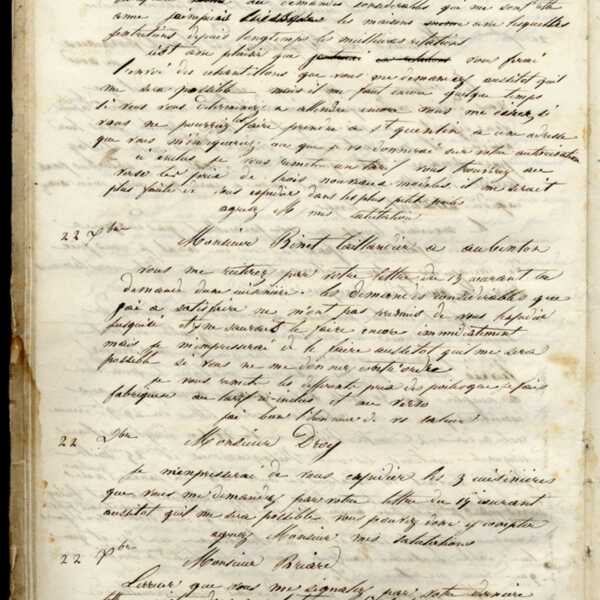 aux demandes considérables que me sont
les maisons avec lesquelles
depuis longtemps les meilleures relations
plaisir que je vous ferai
l'envoi des échantillons que vous me demandez aussitot qu'il
me sera possible mais il me faut encore quelque temps
si vous vous determinez a attendre encore vous me direz si
vous ne pourriez faire prendre a St quentin a une adresse
que vous
ci inclus je vous remets un tarif vous trouverez au
verso les prix de trois nouveaux modeles il me serait
plus facile de vous expedier dans les plus petits
agreez M mes salutations
22 Xbre Monsieur Binet taillandier a aubenton
vous me reiterez par votre lettre du 13 courant la
demande d'une cuisiniere. les demandes considerables que
j'ai a satisfaire ne m'ont pas permis de vous l'expedier
jusqu'ici et je ne saurais le faire encore immediatement
mais je m'empresserai de le faire aussitot qu'il me sera
possible si vous ne me donnez contr'ordre
je vous remets les differents prix des poeles que je fais
fabriquer au tarif ci-inclus et au verso
j'ai bien l'honneur de vs saluer
22 Xbre Monsieur Droy
je m'empresserai de vous expedier les 3 cuisinieres
que vous me demandez par votre lettre du 19 courant
aussitot qu'il me sera possible vous pouvez donc y compter
agreez Monsieur mes salutations
22 Xbre Monsieur Briard
L'erreur que vous me signalez par votre derniere